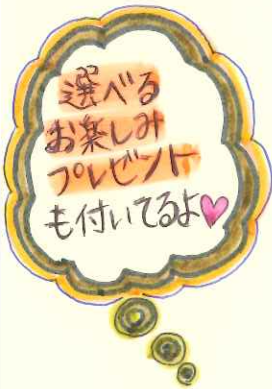 選べる
お楽しみ
プレゼント
も付いてるよ♥